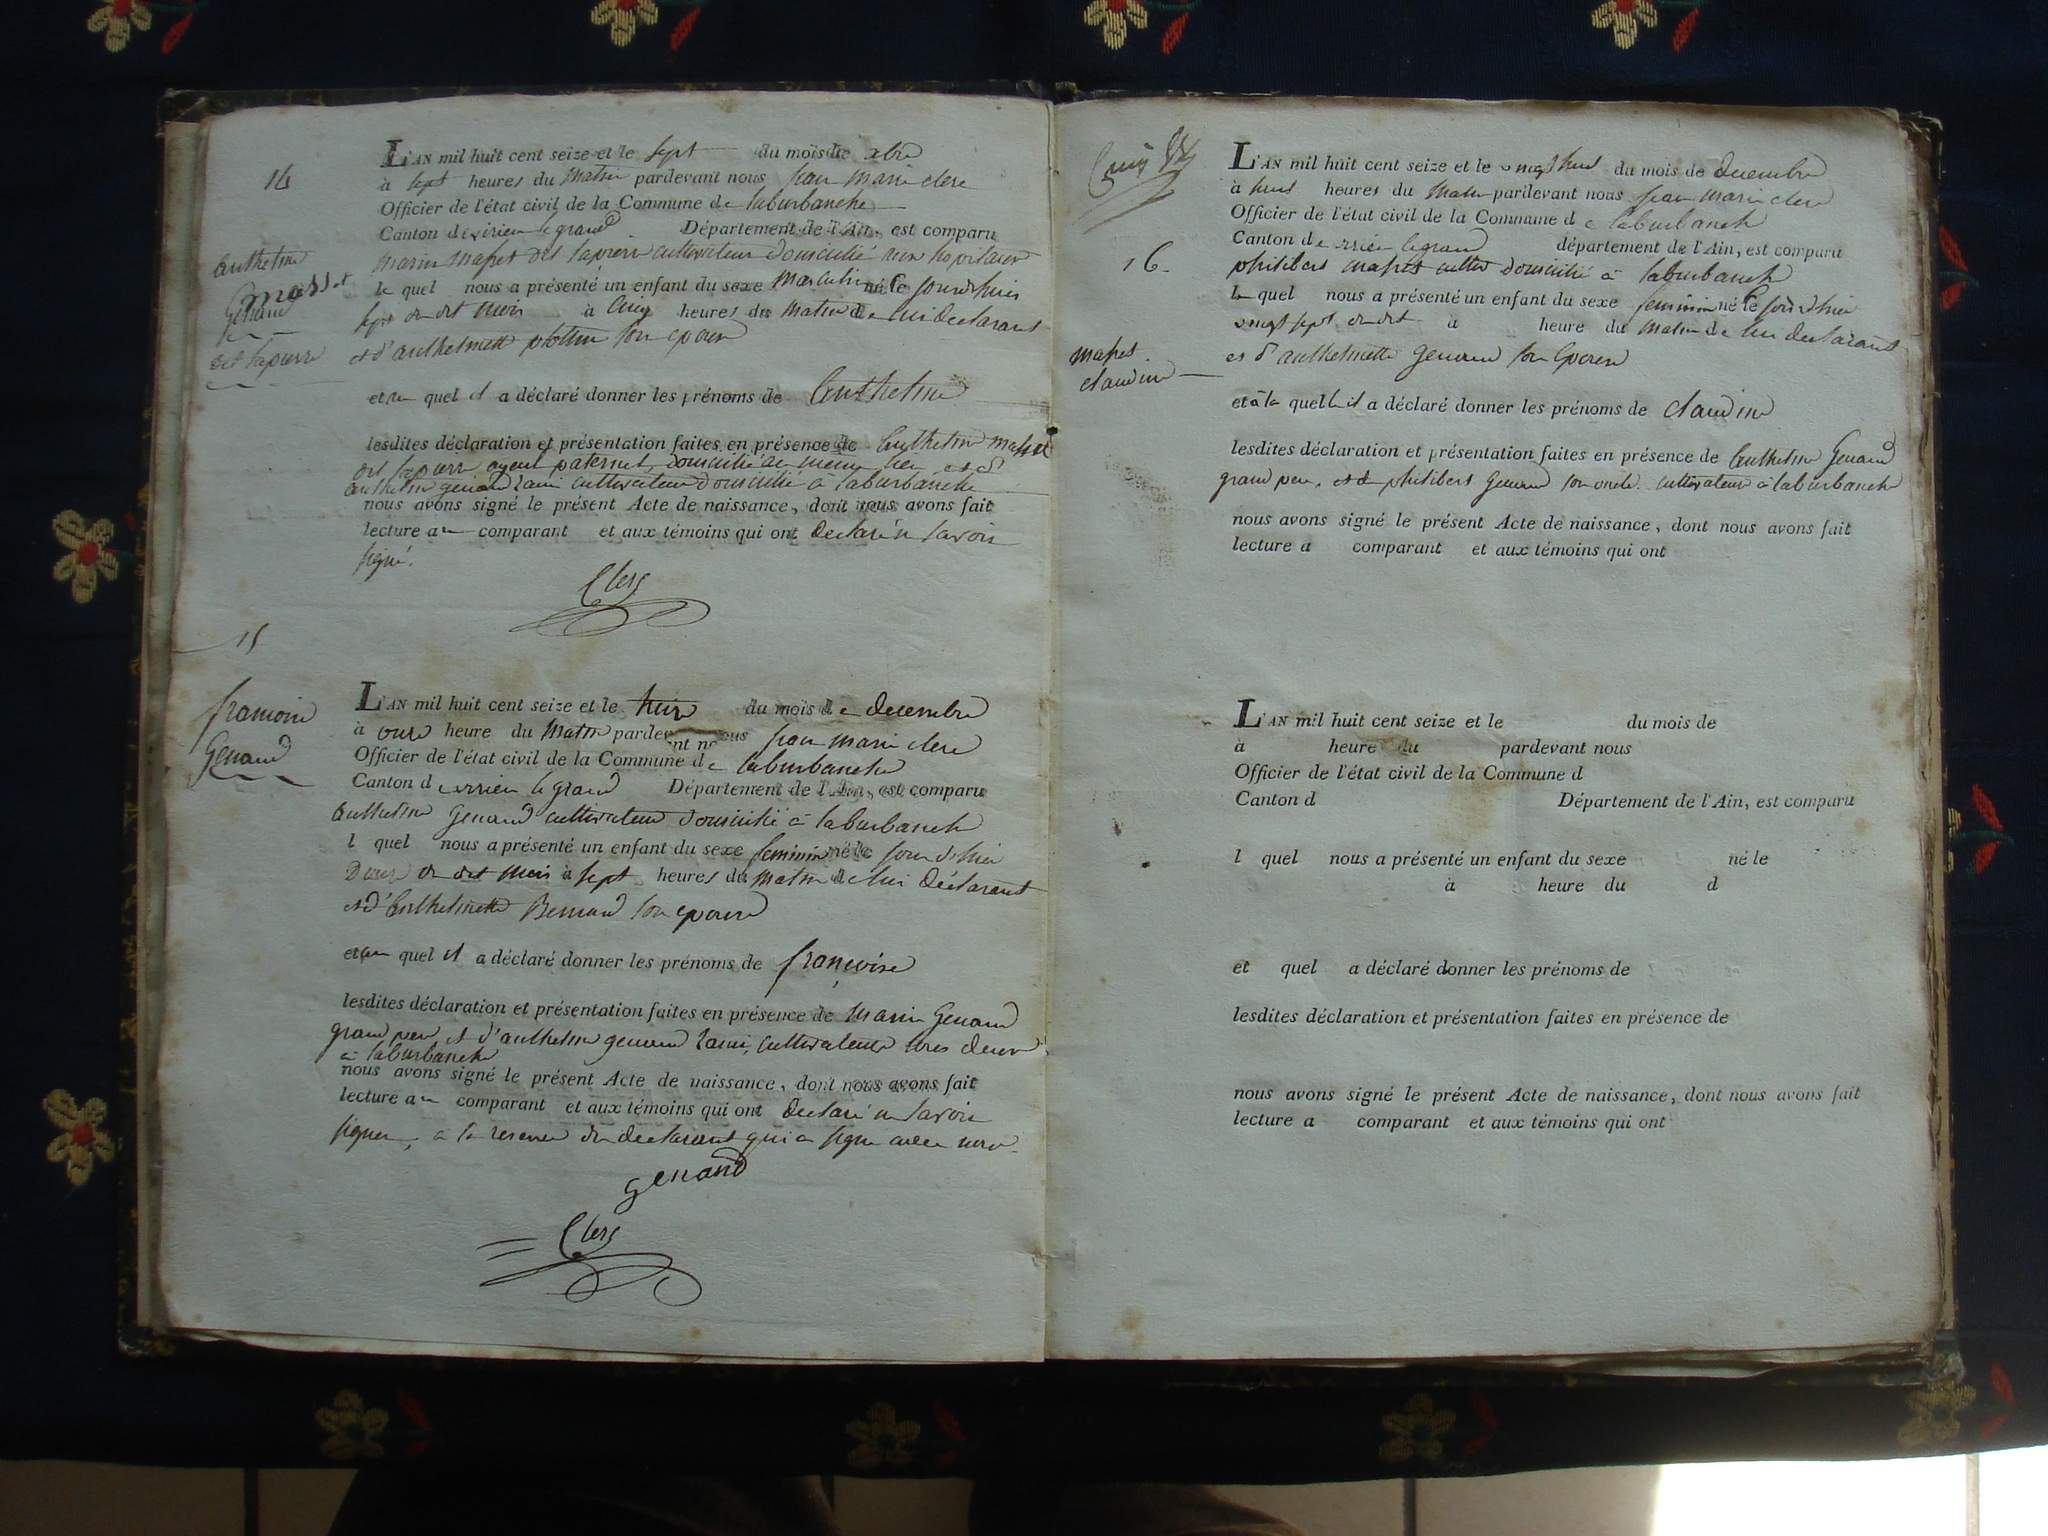 14
Anthelme
masset
Genand
dit lapierre
L'AN mil huit cent seize et le sept du mois de xbre
à sept heures du matin pardevant nous jean marie clerc
Officier de l'état civil de la Commune de laburbanche
Canton de virieu legrand Département de l'Ain, est comparu
marin masset dit lapierre cultivateur domicilié aux hopitaux
le quel nous a présenté un enfant du sexe masculin né le jourd'huis
sept du dit mois à cinq heures du matin de lui declarant
et d'anthelmette son epouse
et au quel il a déclaré donner les prénoms de Anthelme
lesdites déclaration et présentation faites en présence de Anthelme masset
dit lapierre ayeul paternel, domicilié au meme lieu et d'
anthelme genand cultivateur domicilié à laburbanche
nous avons signé le présent Acte de naissance, dont nous avons fait
lecture au comparant et aux témoins qui ont declaré n savoir
signé.
Clerc
15
francoise
Genand
L'AN mil huit cent seize et le treize du mois de decembre
à onze heure du matin pardevant nous jean marie clerc
Officier de l'état civil de la Commune de laburbanche
Canton de virrieu legrand Département de l'Ain, est comparu
Anthelme Genand cultivateur domicilié à laburbanche
l quel nous a présenté un enfant du sexe feminin né le jour d'hier
Douze du dit mois à sept heures du matin de lui déclarant
et d'Anthelmette Bernand son epouse
et au quel il a déclaré donner les prénoms de françoise
lesdites déclaration et présentation faites en présence de Marin Genand
grand pere et d'anthelme genand cultivateurs tous deux
à laburbanche
nous avons signé le présent Acte de naissance, dont nous avons fait
lecture au comparant et aux témoins qui ont declaré n savoir
signer, a la reserve du declarant qui a signe avec nous.
genand
Clerc
16.
masset
claudine
L'AN mil huit cent seize et le vingt huit du mois de decembre
à huit heures du matin pardevant nous jean marie clerc
Officier de l'état civil de la Commune de laburbanche
Canton de virieu legrand département de l'Ain, est comparu
philibert masset cultiv domicilié à laburbanche
le quel nous a présenté un enfant du sexe feminin né le jour d'hier
vingt sept du dit à heure du matin de lui declarant
et d'anthelmette genand son Epouse
et à la quelle il a déclaré donner les prénoms de claudine
lesdites déclaration et présentation faites en présence de Anthelme Genand
grand pere, et de philibert Genand son oncle cultivateurs à laburbanche
nous avons signé le présent Acte de naissance, dont nous avons fait
lecture a comparant et aux témoins qui ont
L'AN mil huit cent seize et le du mois de
à heure du pardevant nous
Officier de l'état civil de la Commune d
Canton d Département de l'Ain, est comparu
l quel nous a présenté un enfant du sexe né le
à heure du d
et quel a déclaré donner les prénoms de
lesdites déclaration et présentation faites en présence de
nous avons signé le présent Acte de naissance, dont nous avons fait
lecture a comparant et aux témoins qui ont